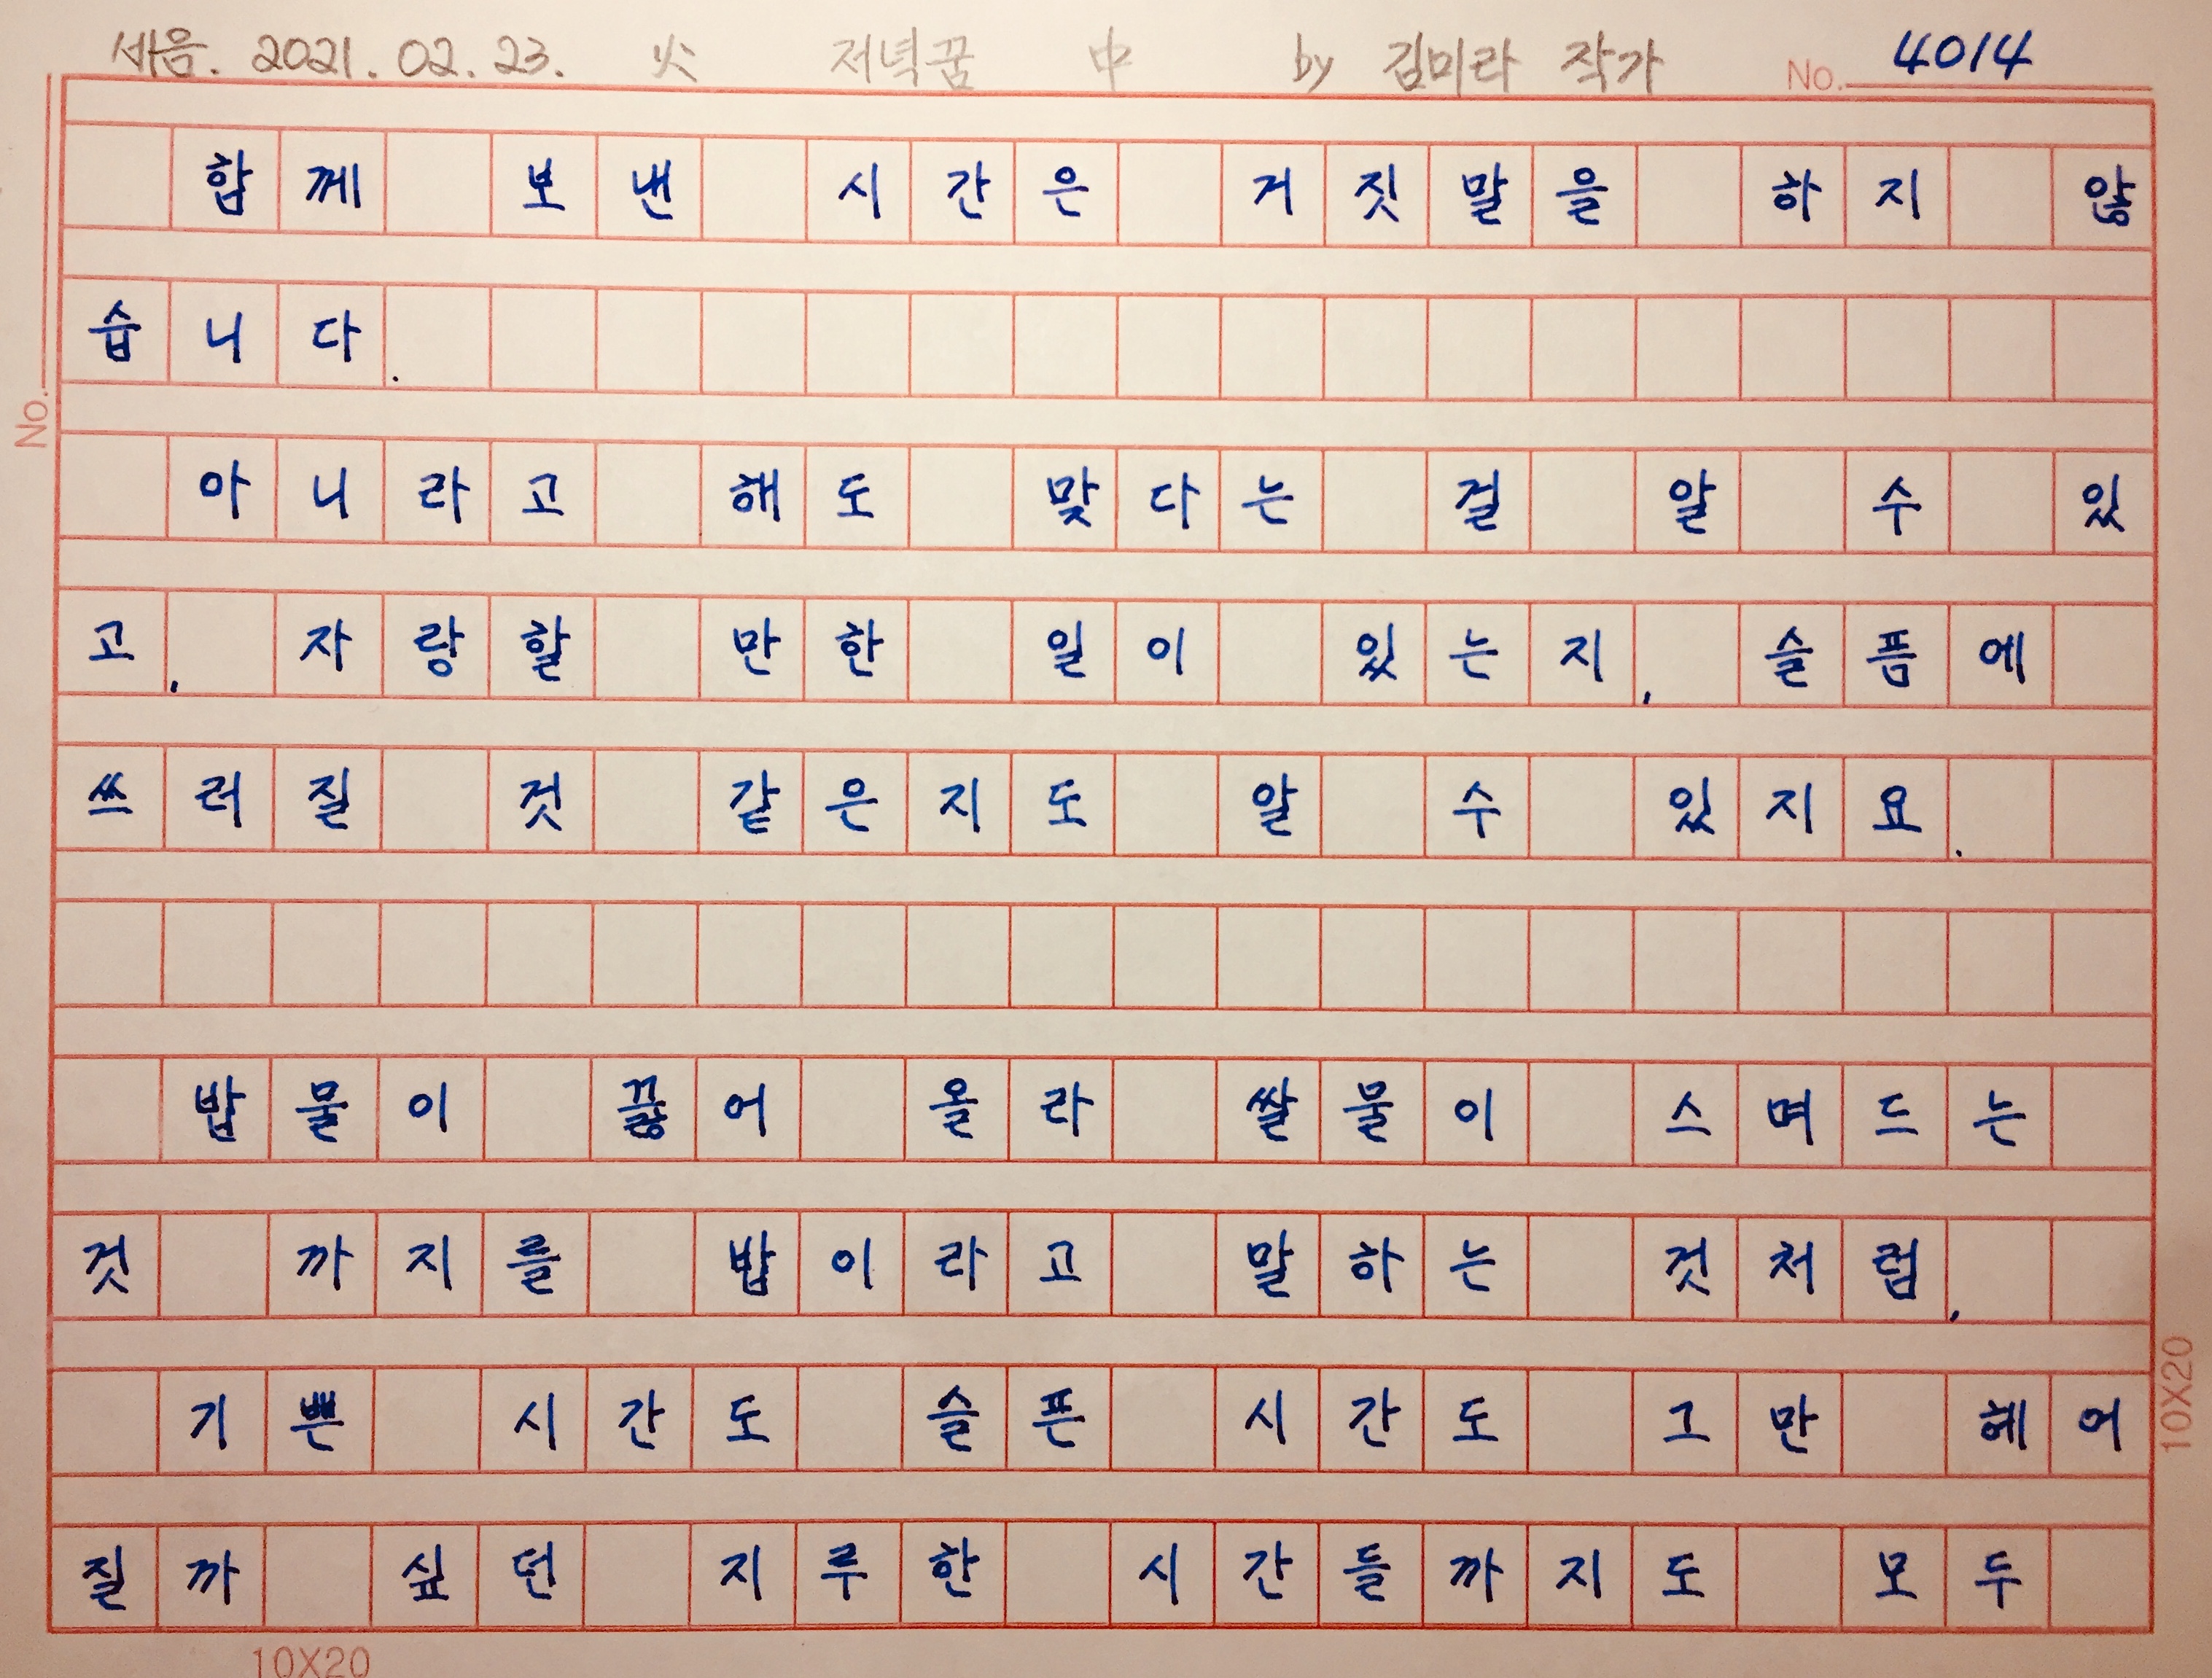 세음. 2021. 02. 23. 火 저녁꿈 中 by 김미라 작가 No. 4014
함께 보낸 시간은 거짓말을 하지 않
습니다.
No.
아니라고 해도 맞다는 걸 알 수 있
고, 자랑할 만한 일이 있는지, 슬픔에
쓰러질 것 같은지도 알 수 있지요.
밥물이 끓어 올라 쌀물이 스며드는
것 까지를 밥이라고 말하는 것처럼,
기쁜 시간도 슬픈 시간도 그만 헤어
질까 싶던 지루한 시간들까지도 모두
10X20
10X20